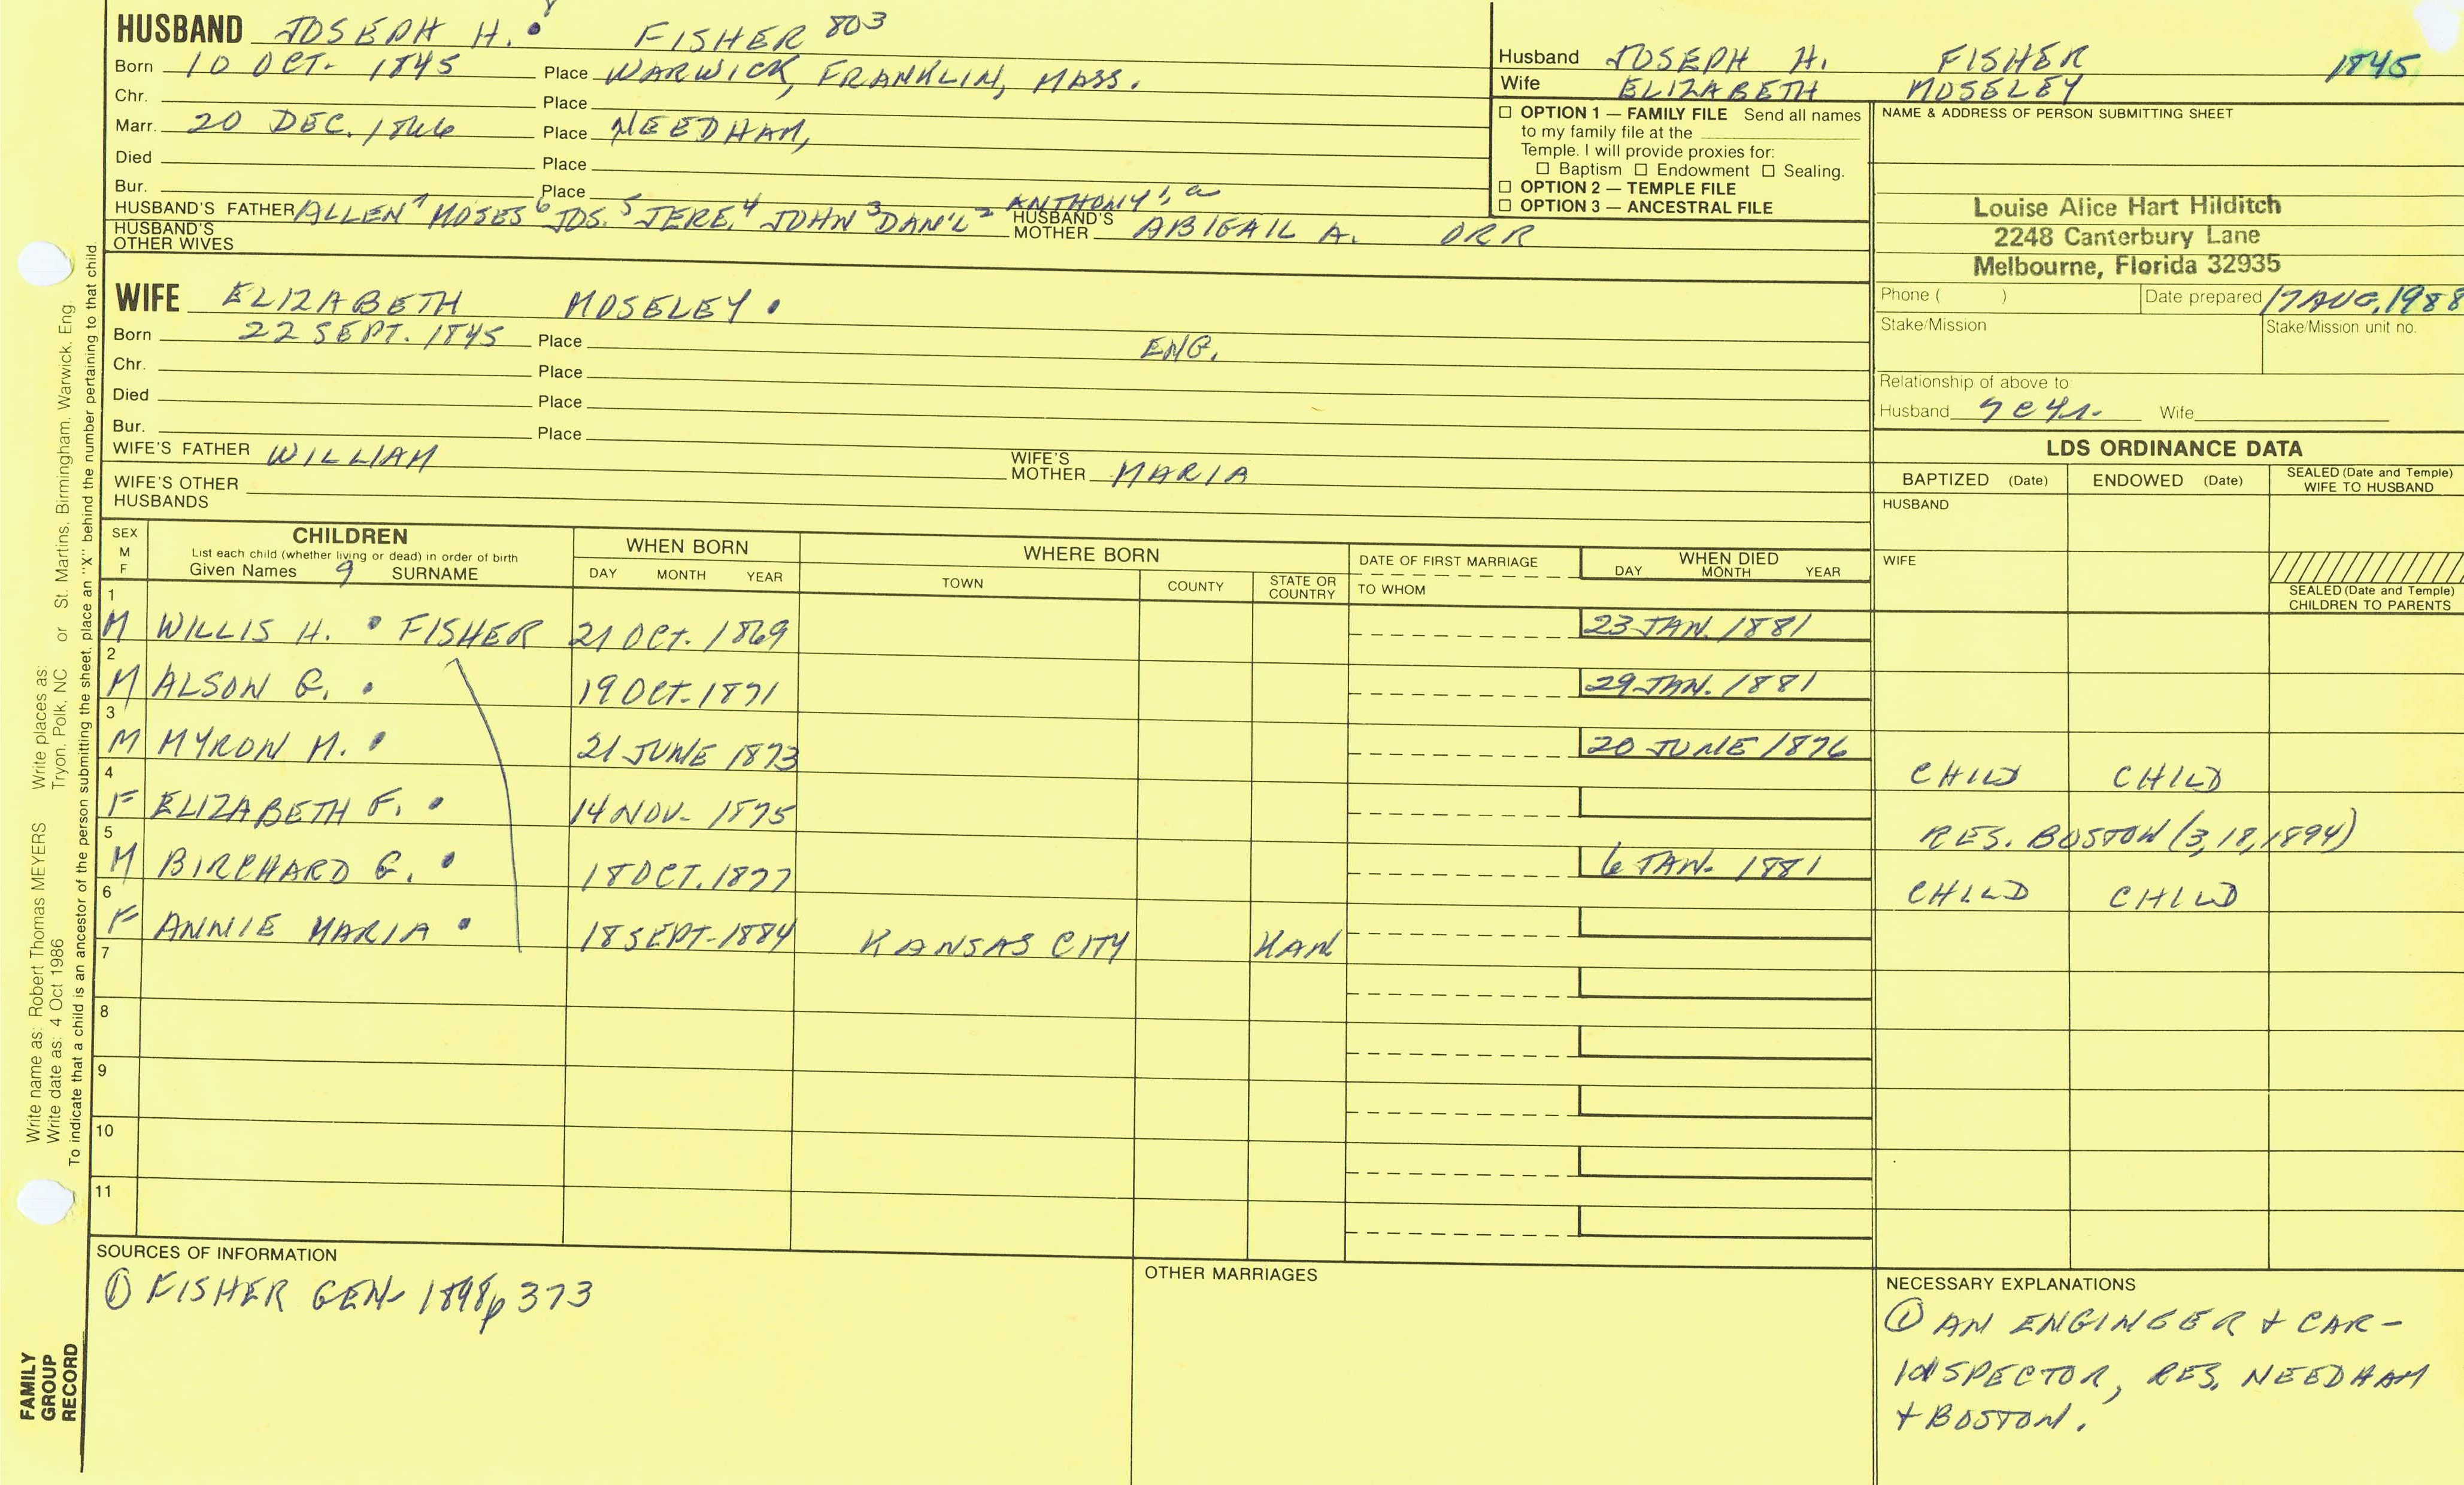 HUSBAND JOSEPH H. 8 FISHER 803
Born 10 OCT. 1845 Place WARWICK, FRANKLIN, MASS.
Chr. Place
Marr. 20 DEC. 1866 Place NEEDHAM,
Died Place
Bur. Place
HUSBAND'S FATHER ALLEN 7 MOSES 6 JOS. 5 JERE. 4 JOHN 3 DAN'L 2 ANTHONY 1, a HUSBAND'S MOTHER ABIGAIL A. ORR
HUSBAND'S OTHER WIVES
WIFE ELIZABETH MOSELEY
Born 22 SEPT. 1845 Place ENG.
Chr. Place
Died Place
Bur. Place
WIFE'S FATHER WILLIAM WIFE'S MOTHER MARIA
WIFE'S OTHER HUSBANDS
Husband JOSEPH H. FISHER 1845
Wife ELIZABETH MOSELEY
☐ OPTION 1 — FAMILY FILE Send all names
to my family file at the
Temple. I will provide proxies for:
☐ Baptism ☐ Endowment ☐ Sealing.
☐ OPTION 2 — TEMPLE FILE
☐ OPTION 3 — ANCESTRAL FILE
NAME & ADDRESS OF PERSON SUBMITTING SHEET
Louise Alice Hart Hilditch
2248 Canterbury Lane
Melbourne, Florida 32935
Phone ( ) Date prepared 17 AUG, 1988
Stake/Mission Stake/Mission unit no.
Relationship of above to
Husband Wife
LDS ORDINANCE DATA
BAPTIZED (Date) ENDOWED (Date) SEALED (Date and Temple) WIFE TO HUSBAND
HUSBAND
WIFE
SEALED (Date and Temple) CHILDREN TO PARENTS
SEX M F CHILDREN WHEN BORN WHERE BORN DATE OF FIRST MARRIAGE WHEN DIED
List each child (whether living or dead) in order of birth
Given Names 9 SURNAME DAY MONTH YEAR TOWN COUNTY STATE OR COUNTRY TO WHOM DAY MONTH YEAR
1 M WILLIS H. FISHER 21 OCT. 1869 23 JAN. 1881
2 M ALSON G. 19 OCT. 1871 29 JAN. 1881
3 M MYRON M. 21 JUNE 1873 20 JUNE 1876 CHILD CHILD
4 F ELIZABETH F. 14 NOV. 1875 RES. BOSTON (3,18,1894)
5 M BIRCHARD G. 18 OCT. 1877 6 JAN. 1881 CHILD CHILD
6 F ANNIE MARIA 18 SEPT. 1884 KANSAS CITY KAN
7
8
9
10
11
SOURCES OF INFORMATION
① FISHER GEN. 1898 p 373
OTHER MARRIAGES
NECESSARY EXPLANATIONS
① AN ENGINEER + CAR-
INSPECTOR, RES. NEEDHAM
+ BOSTON.
Write name as: Robert Thomas MEYERS Write places as:
Write date as: 4 Oct 1986 Tryon, Polk, NC or St. Martins, Birmingham, Warwick, Eng.
To indicate that a child is an ancestor of the person submitting the sheet, place an "X" behind the number pertaining to that child.
FAMILY
GROUP
RECORD